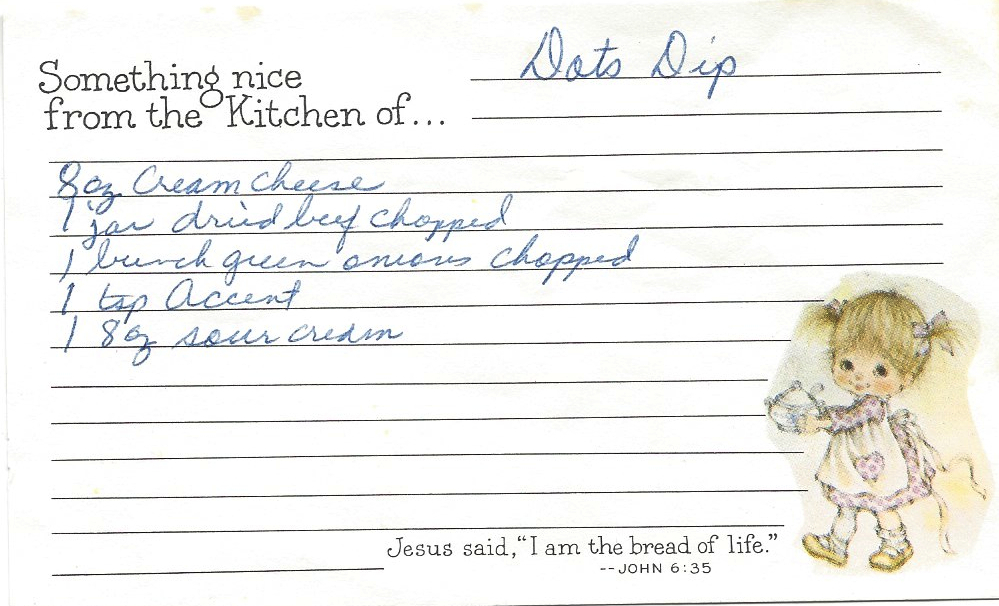 Something nice
from the Kitchen of...
Dots Dip
8 oz Cream cheese
1 jar dried beef chopped
1 bunch green onions chopped
1 tsp Accent
1 8 oz sour cream
Jesus said, "I am the bread of life."
--JOHN 6:35